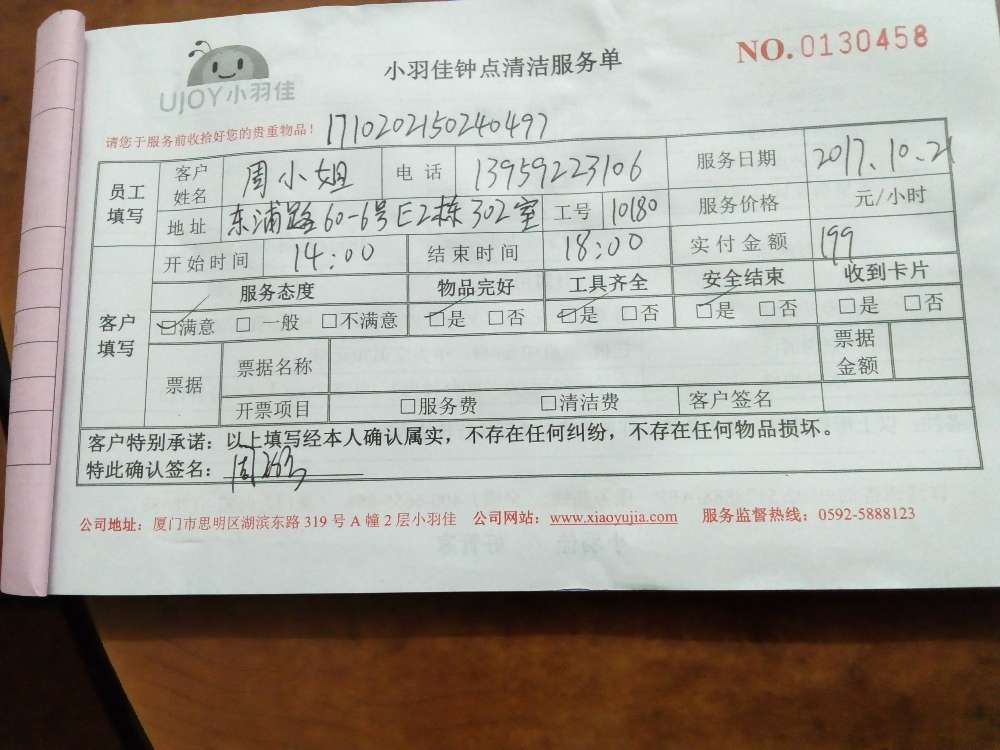 UJOY小羽佳
小羽佳钟点清洁服务单
NO.0130458
请您于服务前收拾好您的贵重物品！ 1710202150240497
员工填写 客户姓名 周小姐 电话 13959223106 服务日期 2017.10.21
地址 东浦路60-6号E2栋302室 工号 10180 服务价格 元/小时
客户填写 开始时间 14:00 结束时间 18:00 实付金额 199
服务态度 物品完好 工具齐全 安全结束 收到卡片
☑满意 □一般 □不满意 ☑是 □否 ☑是 □否 ☑是 □否 □是 □否
票据 票据名称 票据金额
开票项目 □服务费 □清洁费 客户签名
客户特别承诺：以上填写经本人确认属实，不存在任何纠纷，不存在任何物品损坏。
特此确认签名：周
公司地址：厦门市思明区湖滨东路319号A幢2层小羽佳 公司网站：www.xiaoyujia.com 服务监督热线：0592-5888123